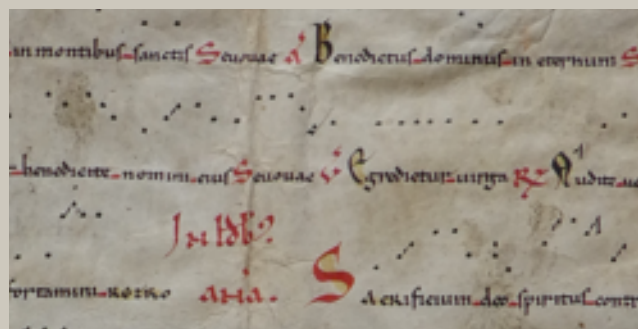 in montibus sanctis Seuouae a Benedictus dominus in eternum S
benedicite nomini eius Seuouae V Egredietur uirga R Audite ue
In ldb
fortamini nolite ana. Sacrificium deo spiritus contri